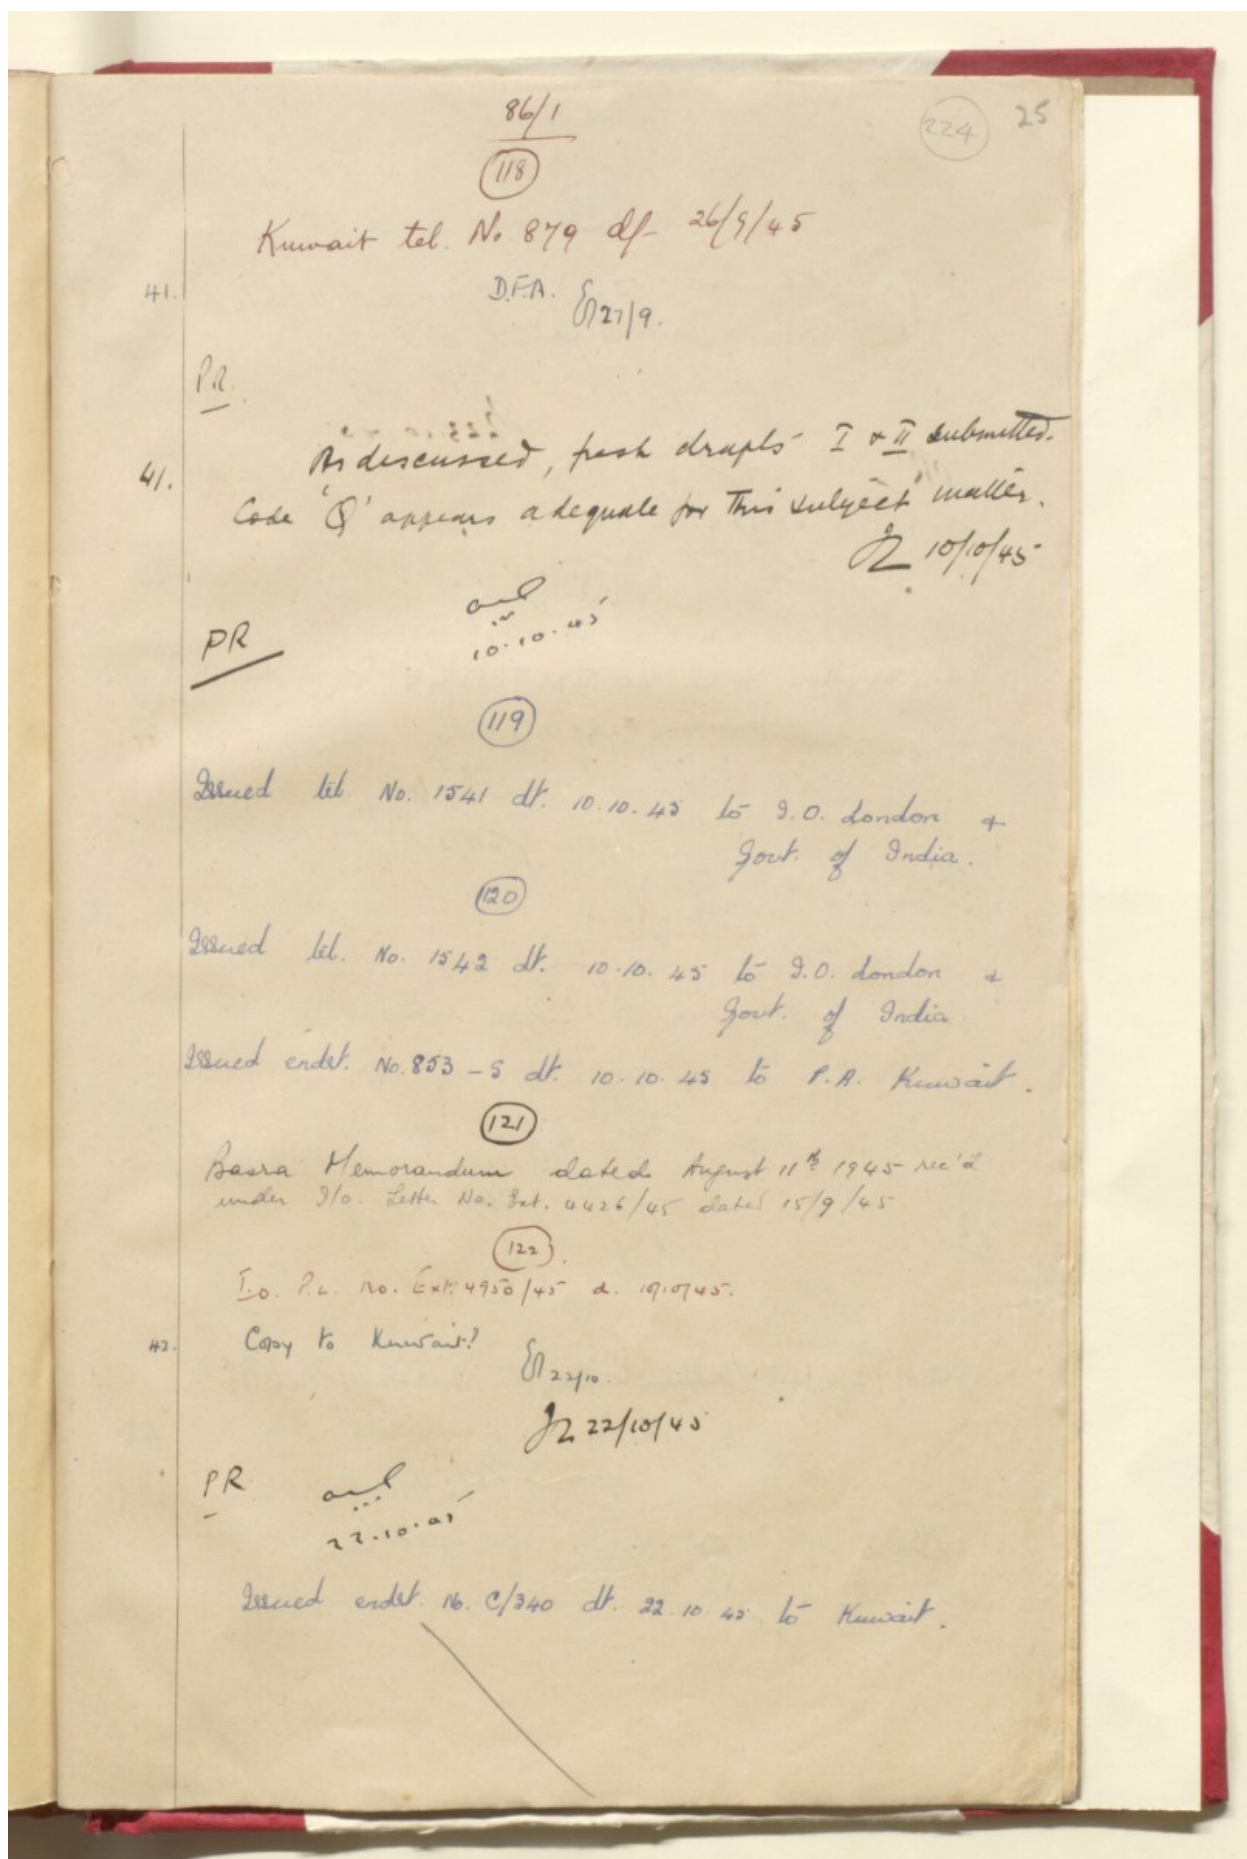 86/1
224 25
118
Kuwait tel. No 879 dt- 26/9/45
D.F.A.
41.
27/9.
P.R.
As discussed, fresh drafts I & II submitted.
41.
Code 'Q' appears adequate for this subject matter.
10/10/45
10.10.45
PR
119
Issued tel. No. 1541 dt. 10.10.45 to I.O. London &
Govt. of India.
120
Issued tel. No. 1542 dt. 10.10.45 to I.O. London &
Govt. of India
Issued endst. No. 853-S dt. 10.10.45 to P.A. Kuwait.
121
Basra Memorandum dated August 11th 1945 rec'd
under I/o. Letter No. Ext. 4426/45 dated 15/9/45
122
I.O. P.L. No. Ext. 4950/45 d. 10/10/45.
42.
Copy to Kuwait?
22/10.
22/10/45
PR
22.10.45
Issued endst. No. C/340 dt. 22.10.45 to Kuwait.